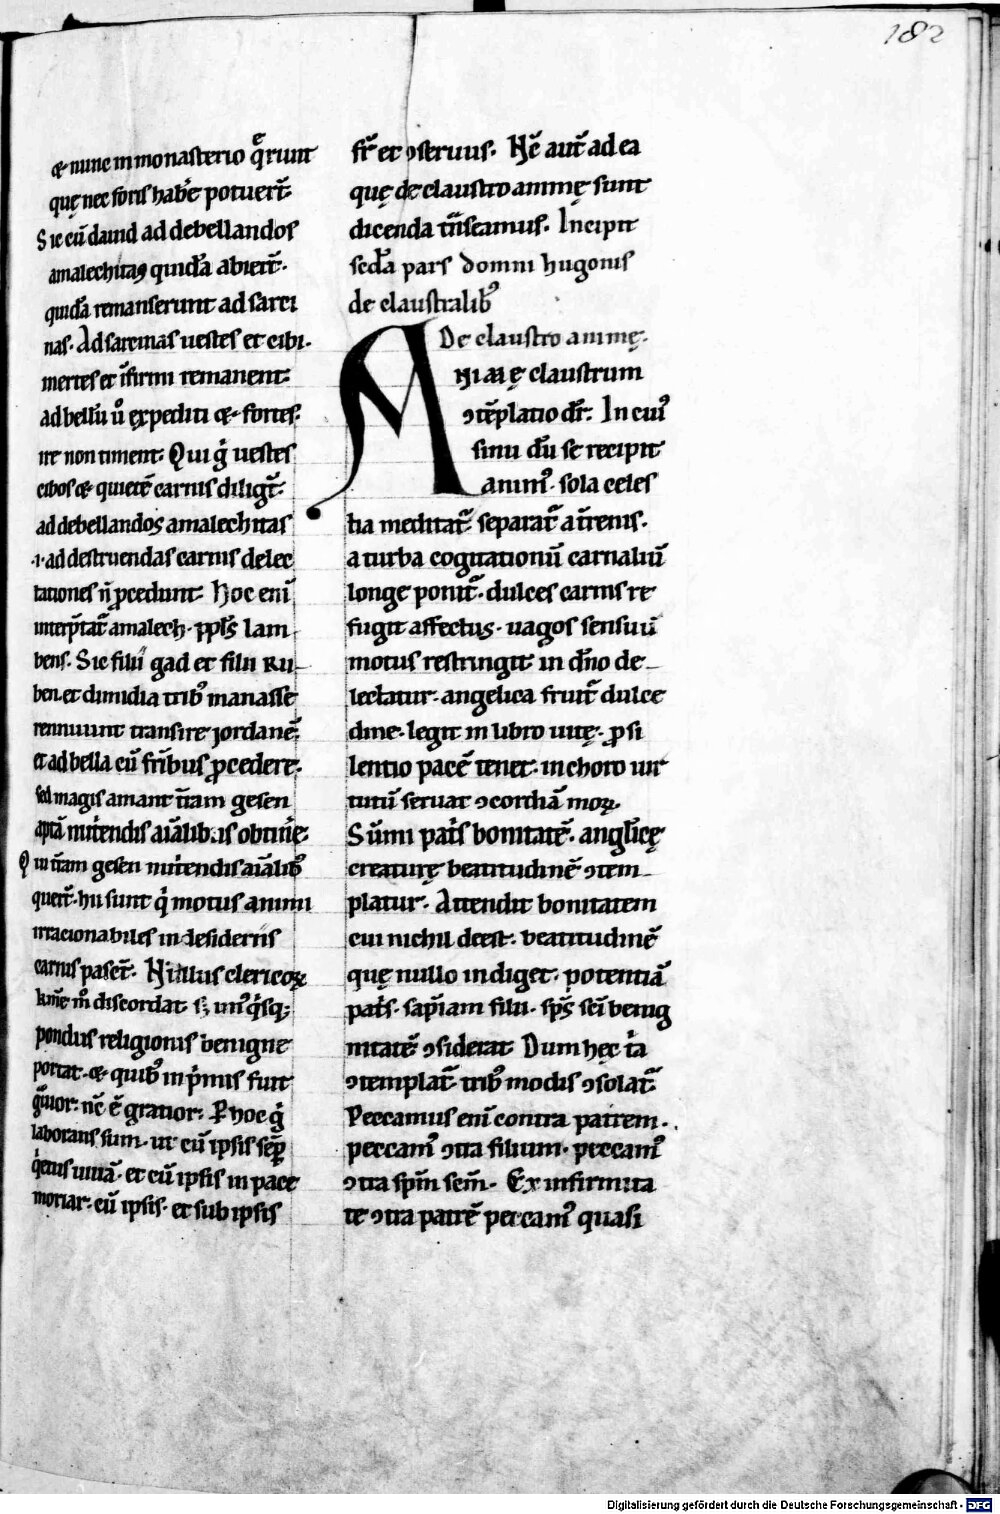 182
⁊ nunc in monasterio q̄runt
quę nec foris habe͂ potuer͂t.
Sic cū dauid ad debellandos
amalechitas quidā abier͂t.
quidā remanserunt ad sarci
nas. Ad sarcinas uestes et cibi.
inertes et īfirmi remanent.
ad bellū u̾o expediti ⁊ fortes.
ire non timent. Qui g̾ uestes
cibos ⁊ quietē carnis diligūt.
ad debellandos amalechitas
.i. ad destruendas carnis delec
tationes n̄ ꝓcedunt. Hoc enī
interp̄tat᷑ amalech. ppl̄s lam
bens. Sic filii gad et filii Ru-
ben. et dimidia tribꝰ manasse
rennuunt transire jordanē.
et ad bella cū fr̄ibus ꝓcedere.
sed magis amant t̄ram gesen
aptā nut̾endis aīalibus obtin̾e.
Qui t̄ram gesen nut̾endis aīalibꝰ
quer͂t. hii sunt q̾ motus animi
irracionabiles in desideriis
carnis pasc͂t. N̾ illus clericoꝝ
carmē m̄ discordat. s; unꝰq̾sq;
pondus religionis benigne
portat. ⁊ quibꝰ in p̾mis fuit
g̾uior. nc̄ ē gratior. P̱ hoc g̾
laborans sum. ut cū ipsis semp̱
q̾etus uiuā. et cū ipsis in pace
moriar. cū ipsis. et sub ipsis
fr̄ et ꝯseruus. Hec̄ aut̄ ad ea
quę de claustro animę sunt
dicenda t̄nseamus. Incipit
secd̄a pars domni hugonis
de claustralibꝰ
De claustro animę.
ANIMĘ claustrum
ꝯtēplatio dr̄. In cuiꝰ
sinu dū se recipit
animꝰ. sola celes
tia meditat᷑. separat᷑ a t̄renis.
a turba cogitationū carnaliū
longe ponit᷑. dulces carnis re
fugit affectus. uagos sensuū
motus restringit. in dn̄o de-
lectatur. angelica fruit᷑ dulce
dine. legit in libro uitę. ꝓ si
lentio pacē tenet. in choro uir
tutū seruat ꝯcordiā moꝝ.
Sūmi pat̾s bonitatē. anglicę
creaturę beatitudinē ꝯtem-
platur. Attendit bonitatem
cui nichil deest. beatitudinē
quę nullo indiget. potentiā
pat̾s. sap̄iam filii. sp̄s sc̄i benig
nitatē ꝯsiderat. Dum hęc ita
ꝯtemplat᷑. tribꝰ modis ꝯsolat᷑.
Peccamus enī contra patrem.
peccamꝰ ꝯtra filium. peccamꝰ
ꝯtra spm̄ scm̄. Ex infirmita
te ꝯtra patrē peccamꝰ quasi
Digitalisierung gefördert durch die Deutsche Forschungsgemeinschaft - DFG